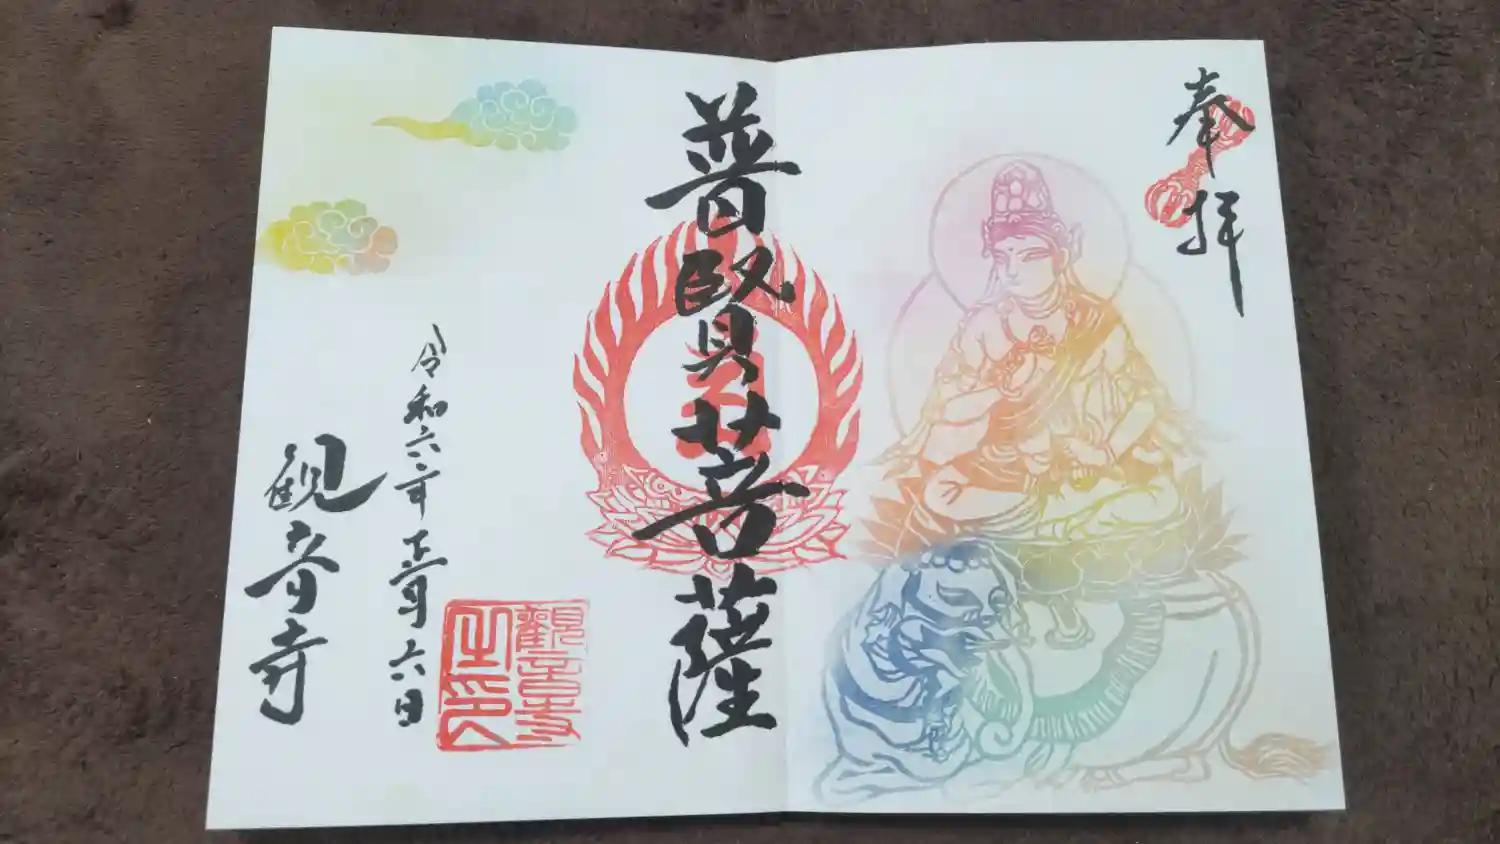 奉拝
普賢菩薩
令和六年正月六日
観音寺
観音寺之印